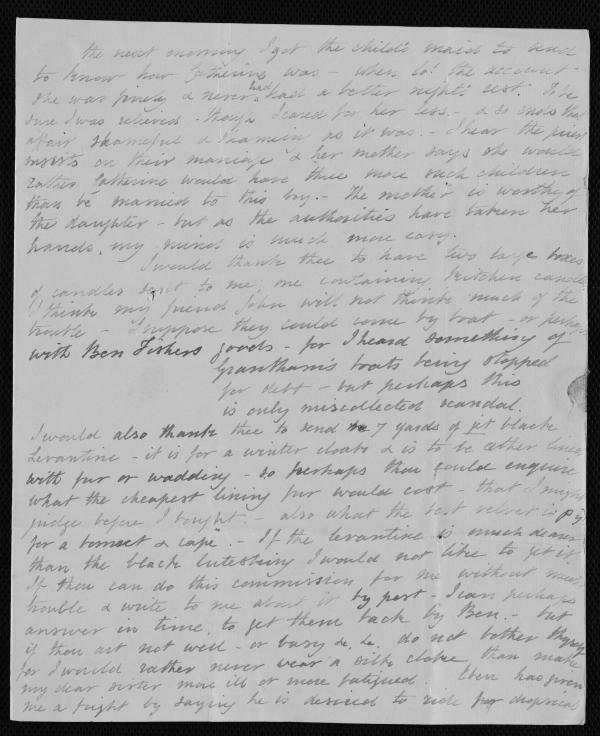 the next morning I got the child's maid to send
to know how Catherine was - when lo! the account
she was finely & never had had a better night's rest. To be
sure I was relieved - though I cared for her less. - & so ends that
affair shameful & as it was. - I hear the priest
insists on their marriage & her mother says she would
rather Catherine would have three more such children
than be married to this boy. - The mother is worthy of
the daughter - but as the authorities have taken her
hands, my mind is much more easy.
I would thank thee to have two large boxes
of candles sent to me, one containing kitchen candles
I think my friend John will not think much of the
trouble - I suppose they could come by boat - or perhaps
with Ben Fishers goods - for I heard something of
Grantham's boats being stopped
for debt - but perhaps this
is only miscollected scandal.
I would also thank thee to send me 7 yards of jet black
Levantine - it is for a winter cloak & is to be either lined
with fur or wadding - so perhaps thou could enquire
what the cheapest lining fur would cost - that I might
judge before I bought. - also what the best velvet is
for a bonnet & cape. - If the levantine is much dearer
than the black lutestring I would not like to get it
If thou can do this commission for me without much
trouble & write to me about it by post - I can perhaps
answer in time, to get them back by Ben. - but
if thou art not well - or busy &c. &c. do not bother thyself
for I would rather never wear a silk cloke than make
my dear sister more ill or more fatigued. Eben has given
me a fright by saying he is desired to ride for dropsical